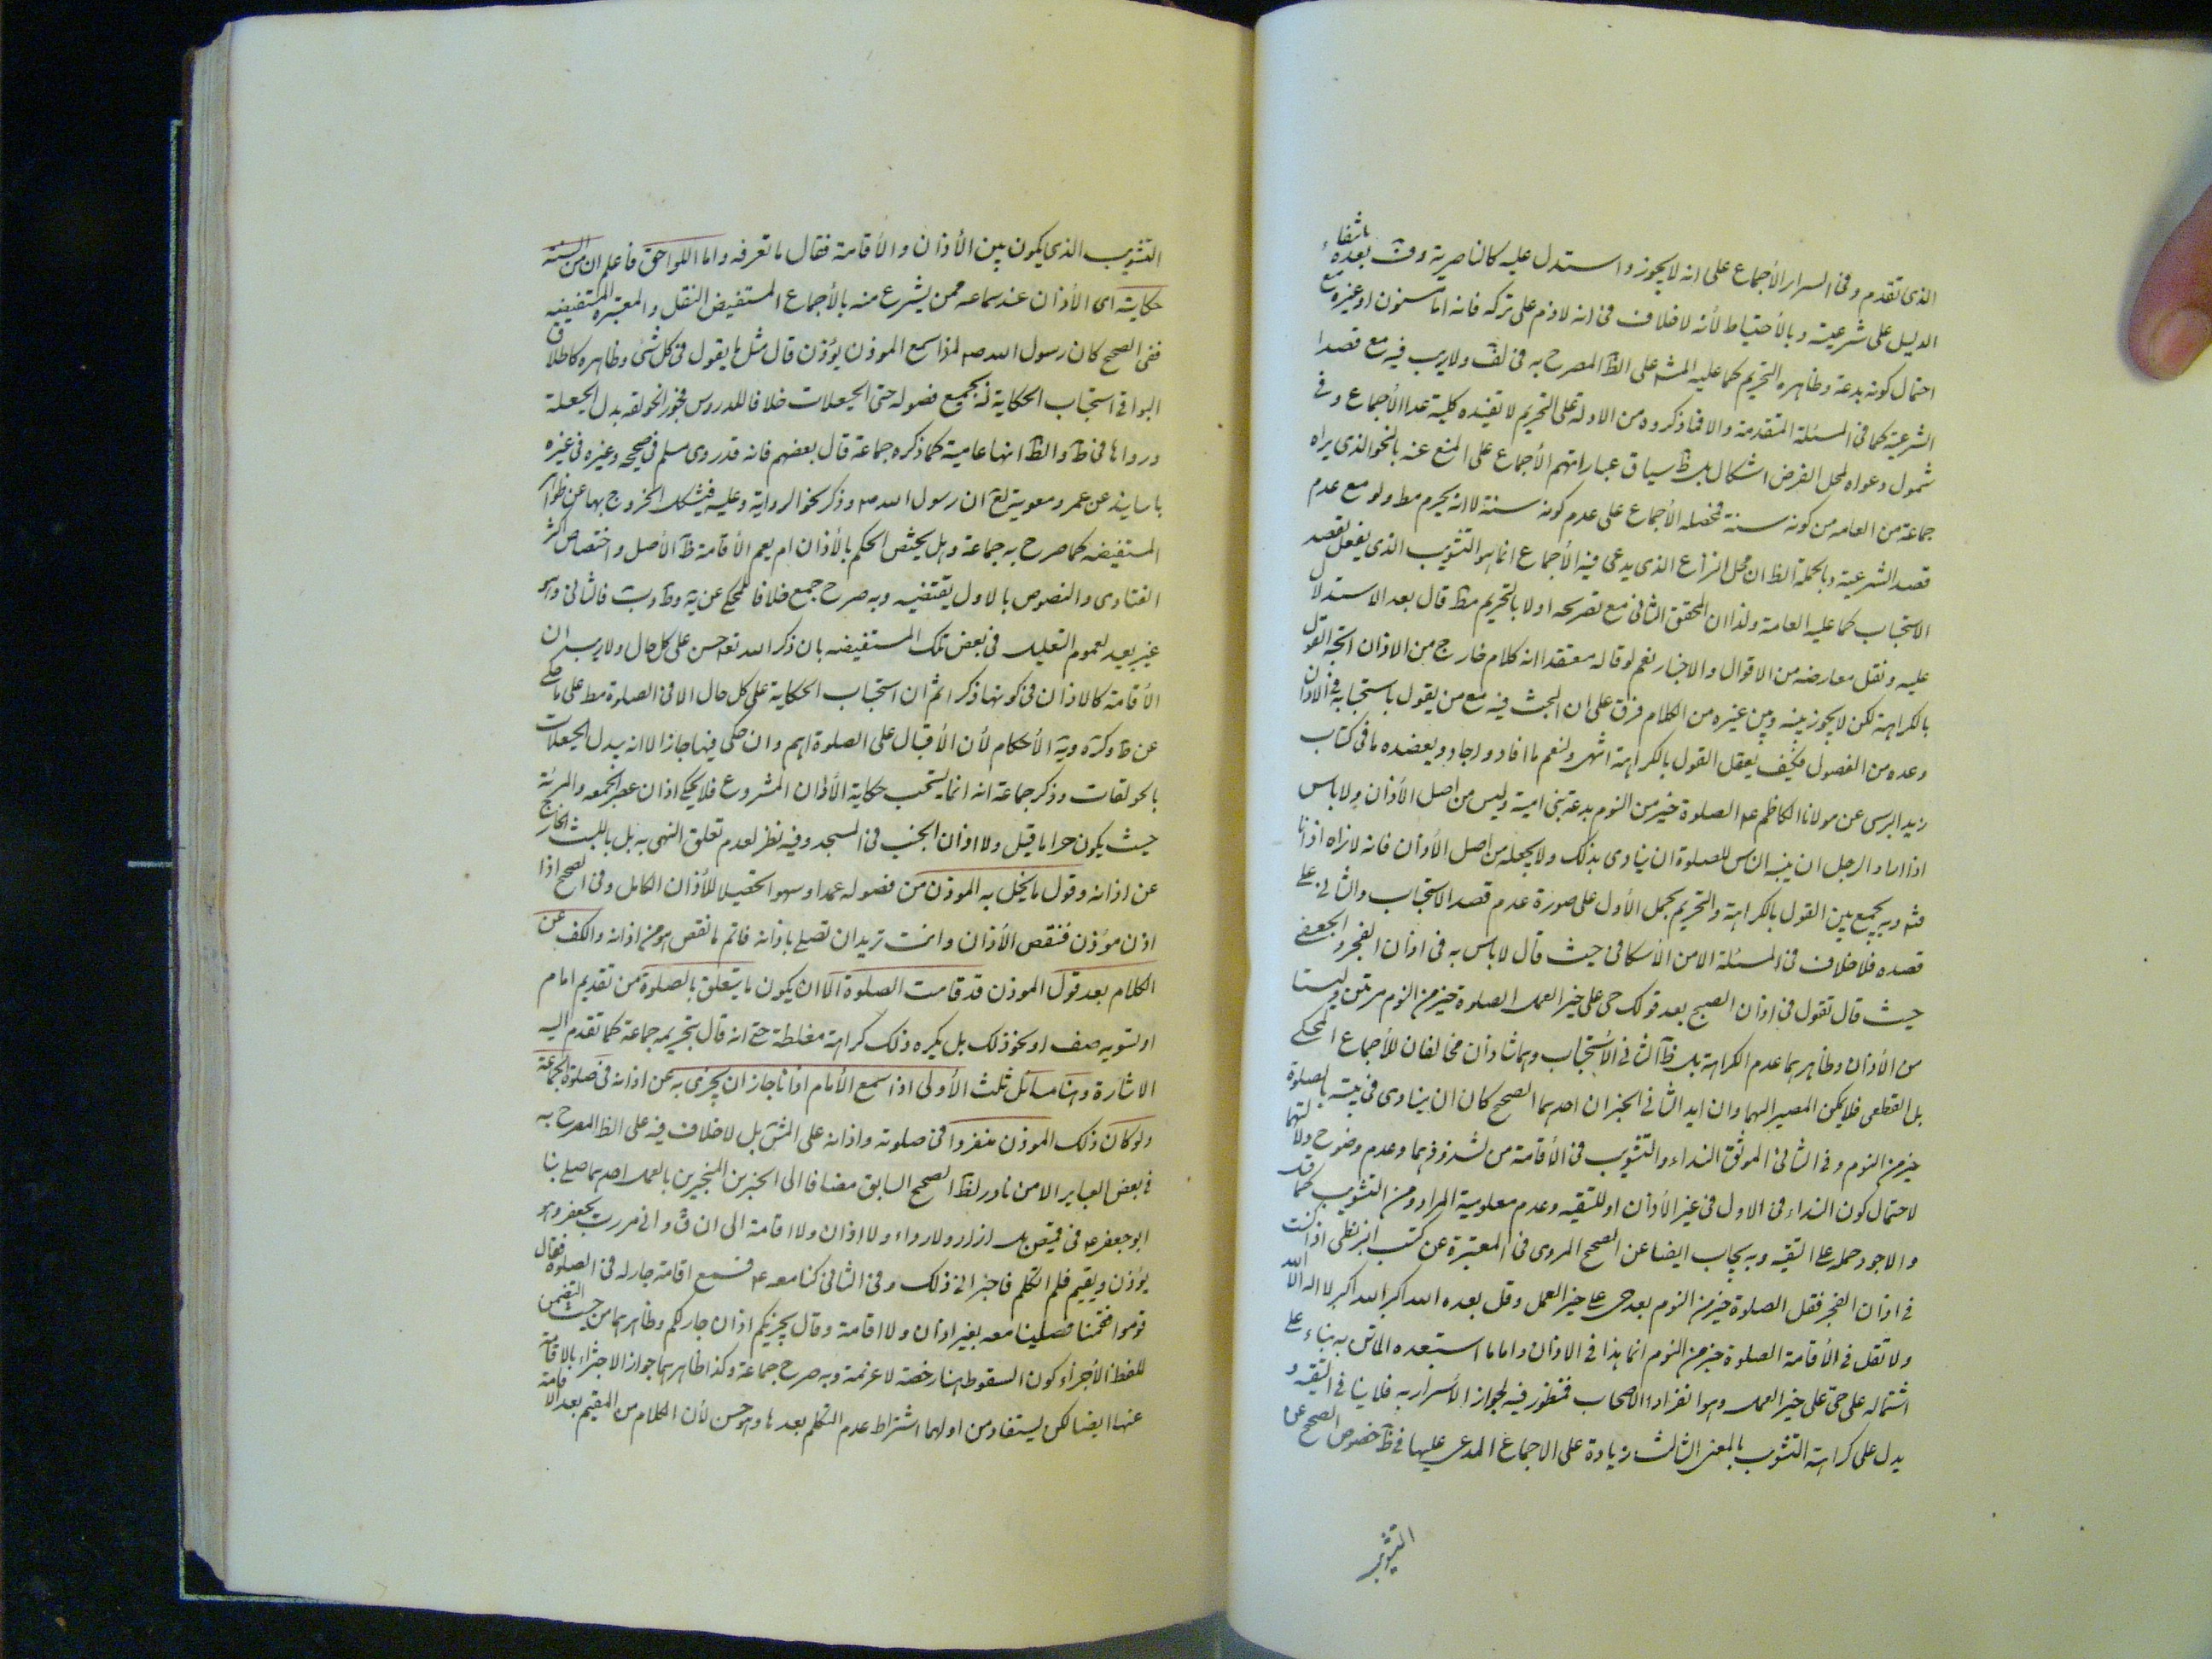 الذى تقدم وفى السرائر الأجماع على انه لا يجوز واستدل عليه كالناصرية وف بعده بانتفاء
الدليل على شرعيته وبالأحتياط لأنه لا خلاف فى انه لا ذم على تركه فانه اما مسنون او غيره مع
احتمال كونه بدعة وظاهره التحريم كما عليه المشه على الظ المصرح به فى لف ولا ريب فيه مع قصد
الشرعية كما فى المسئلة المتقدمة والا فما ذكروه من الادلة على التحريم لا تفيده كلية عدا الأجماع وفى
شمول دعواه لمحل الفرض اشكال بل ظ سياق عباراتهم الأجماع على المنع عنه بالنحو الذى يراه
جماعة من العامه من كونه سنة فمحصله الأجماع على عدم كونه سنة لا انه يحرم مط ولو مع عدم
قصد الشرعية وبالجملة الظ ان محل النزاع الذى يدعى فيه الأجماع انما هو التثويب الذى يفعل بقصد
الاستحباب كما عليه العامة ولذا ان المحقق الثانى مع تصريحه اولا بالتحريم مط قال بعد الاستدلال
عليه ونقل معارضه من الاقوال والاخبار نعم لو قاله معتقدا انه كلام خارج من الاذان اتجه القول
بالكراهة لكن لا يجوز بينه وبين غيره من الكلام فرق على ان البحث فيه مع من يقول باستحبابه فى الاذان
وعده من الفصول فكيف يعقل القول بالكراهة انتهى ولنعم ما افاد واجاد ويعضده ما فى كتاب
زيد النرسى عن مولانا الكاظم ع الصلوة خير من النوم بدعة بنى امية وليس من اصل الأذان ولا باس
اذا اراد الرجل ان ينبه الناس للصلوة ان ينادى بذلك ولا يجعله من اصل الأذان فانه لا نراه اذانا
فته وبه يجمع بين القول بالكراهة والتحريم بحمل الأول على صورة عدم قصد الاستحباب والثانى على
قصده فلا خلاف فى المسئلة الا من الأسكافى حيث قال لا باس به فى اذان الفجر والجعفى
حيث قال تقول فى اذان الصبح بعد قولك حى على خير العمل الصلوة خير من النوم مرتين وليستا
من الأذان وظاهرهما عدم الكراهة بل ظ الثانى الأستحباب وهما شاذان مخالفان للأجماع المحكى
بل القطعى فلا يمكن المصير اليهما وان ايد الثانى الخبران احدهما الصحيح كان ابى ينادى فى بيته بالصلوة
خير من النوم وفى الثانى الموثق النداء والتثويب فى الأقامة من لشذوذهما وعدم وضوح دلالتهما
لاحتمال كون النداء فى الاول فى غير الأذان او للتقيه وعدم معلومية المراد من التثويب كما قد
والاجود حمله على التقيه وبه يجاب ايضا عن الصحيح المروى فى المعتبرة عن كتب البزنطى اذا كنت
فى اذان الفجر فقل الصلوة خير من النوم بعد حى على خير العمل وقل بعده الله اكبر الله اكبر لا اله الا الله
ولا تقل فى الأقامة الصلوة خير من النوم انما هذا فى الاذان واما ما استبعده الماتن به بناء على
اشتماله على حى على خير العمل وهو انفراد الاصحاب فمنظور فيه لجواز الأسرار به فلا ينافى التقية و
يدل على كراهة التثويب بالمعنى الثالث زيادة على الاجماع المدعى عليها فى ظ خصوص الصحيح عن
التثويب
التثويب الذى يكون بين الأذان والأقامة فقال ما نعرفه واما اللواحق فاعلم ان من السنة
حكايته اى الأذان عند سماعه ممن يشرع منه بالأجماع المستفيض النقل والمعتبرة المستفيضه
ففى الصحيح كان رسول الله ص اذا سمع الموذن يؤذن قال مثل ما يقول فى كل شئ وظاهره كاطلاق
البواقى استحباب الحكاية لجميع فصوله حتى الحيعلات خلافا للدروس فجوز الحولقه بدل الحيعلة
ورواها فى ط والظ انها عامية كما ذكره جماعة قال بعضهم فانه قد روى مسلم فى صحيحه وغيره فى غيره
باسانيد عن عمر ومعوية ان رسول الله ص وذكر نحو الرواية وعليه فيشكل الخروج بها عن ظواهر
المستفيضه كما صرح به جماعة وهل يختص الحكم بالأذان ام يعم الأقامة ظ الأصل واختصاص اكثر
الفتاوى والنصوص بالاول يقتضيه وبه صرح جمع خلافا للمحكى عن يه وط وب فالثانى وهو
غير بعيد لعموم التعليل فى بعض تلك المستفيضه بان ذكر الله تع حسن على كل حال ولا ريب ان
الأقامة كالاذان فى كونها ذكرا ثم ان استحباب الحكاية على كل حال الا فى الصلوة مط على ما حكى
عن ط وكره ويه الأحكام لأن الأقبال على الصلوة اهم وان حكى فيها جاز الا انه يبدل الحيعلات
بالحولقات وذكر جماعة انه انما يستحب حكاية الأذان المشروع فلا يحكى اذان عصر الجمعه والمرئة
حيث يكون حراما قيل ولا اذان الجنب فى المسجد وفيه نظر لعدم تعلق النهى به بل باللبث الخارج
عن اذانه وقول ما يخل به الموذن من فصوله عمدا او سهوا تحصيلا للأذان الكامل وفى الصحيح اذا
اذن مؤذن فنقص الأذان وانت تريد ان تصلى باذانه فاتم ما نقص هو من اذانه والكف عن
الكلام بعد قول الموذن قد قامت الصلوة الا ان يكون ما يتعلق بالصلوة من تقديم امام
او تسوية صف او نحو ذلك بل يكره ذلك كراهة مغلظة حتى انه قال بتحريمه جماعة كما تقدم اليه
الاشارة وهنا مسائل ثلث الأولى اذا سمع الأمام اذانا جاز ان يجتزى به عن اذانه فى صلوة الجماعة
ولو كان ذلك الموذن منفردا فى صلوته واذانه على المش بل لا خلاف فيه على الظ المصرح به
فى بعض العباير الا من نادر لظ الصحيح السابق مضافا الى الخبرين المنجبرين بالعمل احدهما صلى بنا
ابو جعفر ع فى قميص بلا ازار ولا رداء ولا اذان ولا اقامة الى ان ق وانى مررت بجعفر وهو
يؤذن ويقيم فلم اتكلم فاجزانى ذلك وفى الثانى كنا معه ع فسمع اقامة جار له فى الصلوة فقال
قوموا فقمنا فصلينا معه بغير اذان ولا اقامة وقال يجزيكم اذان جاركم وظاهرهما من حيث التضمن
للفظ الأجزاء كون السقوط هنا رخصة لا عزيمة وبه صرح جماعة وكذا ظاهرهما جواز الاجتزاء بالاقامة
عنها ايضا لكن يستفاد من اولهما اشتراط عدم التكلم بعدها وهو حسن لأن الكلام من المقيم بعد الاقامة